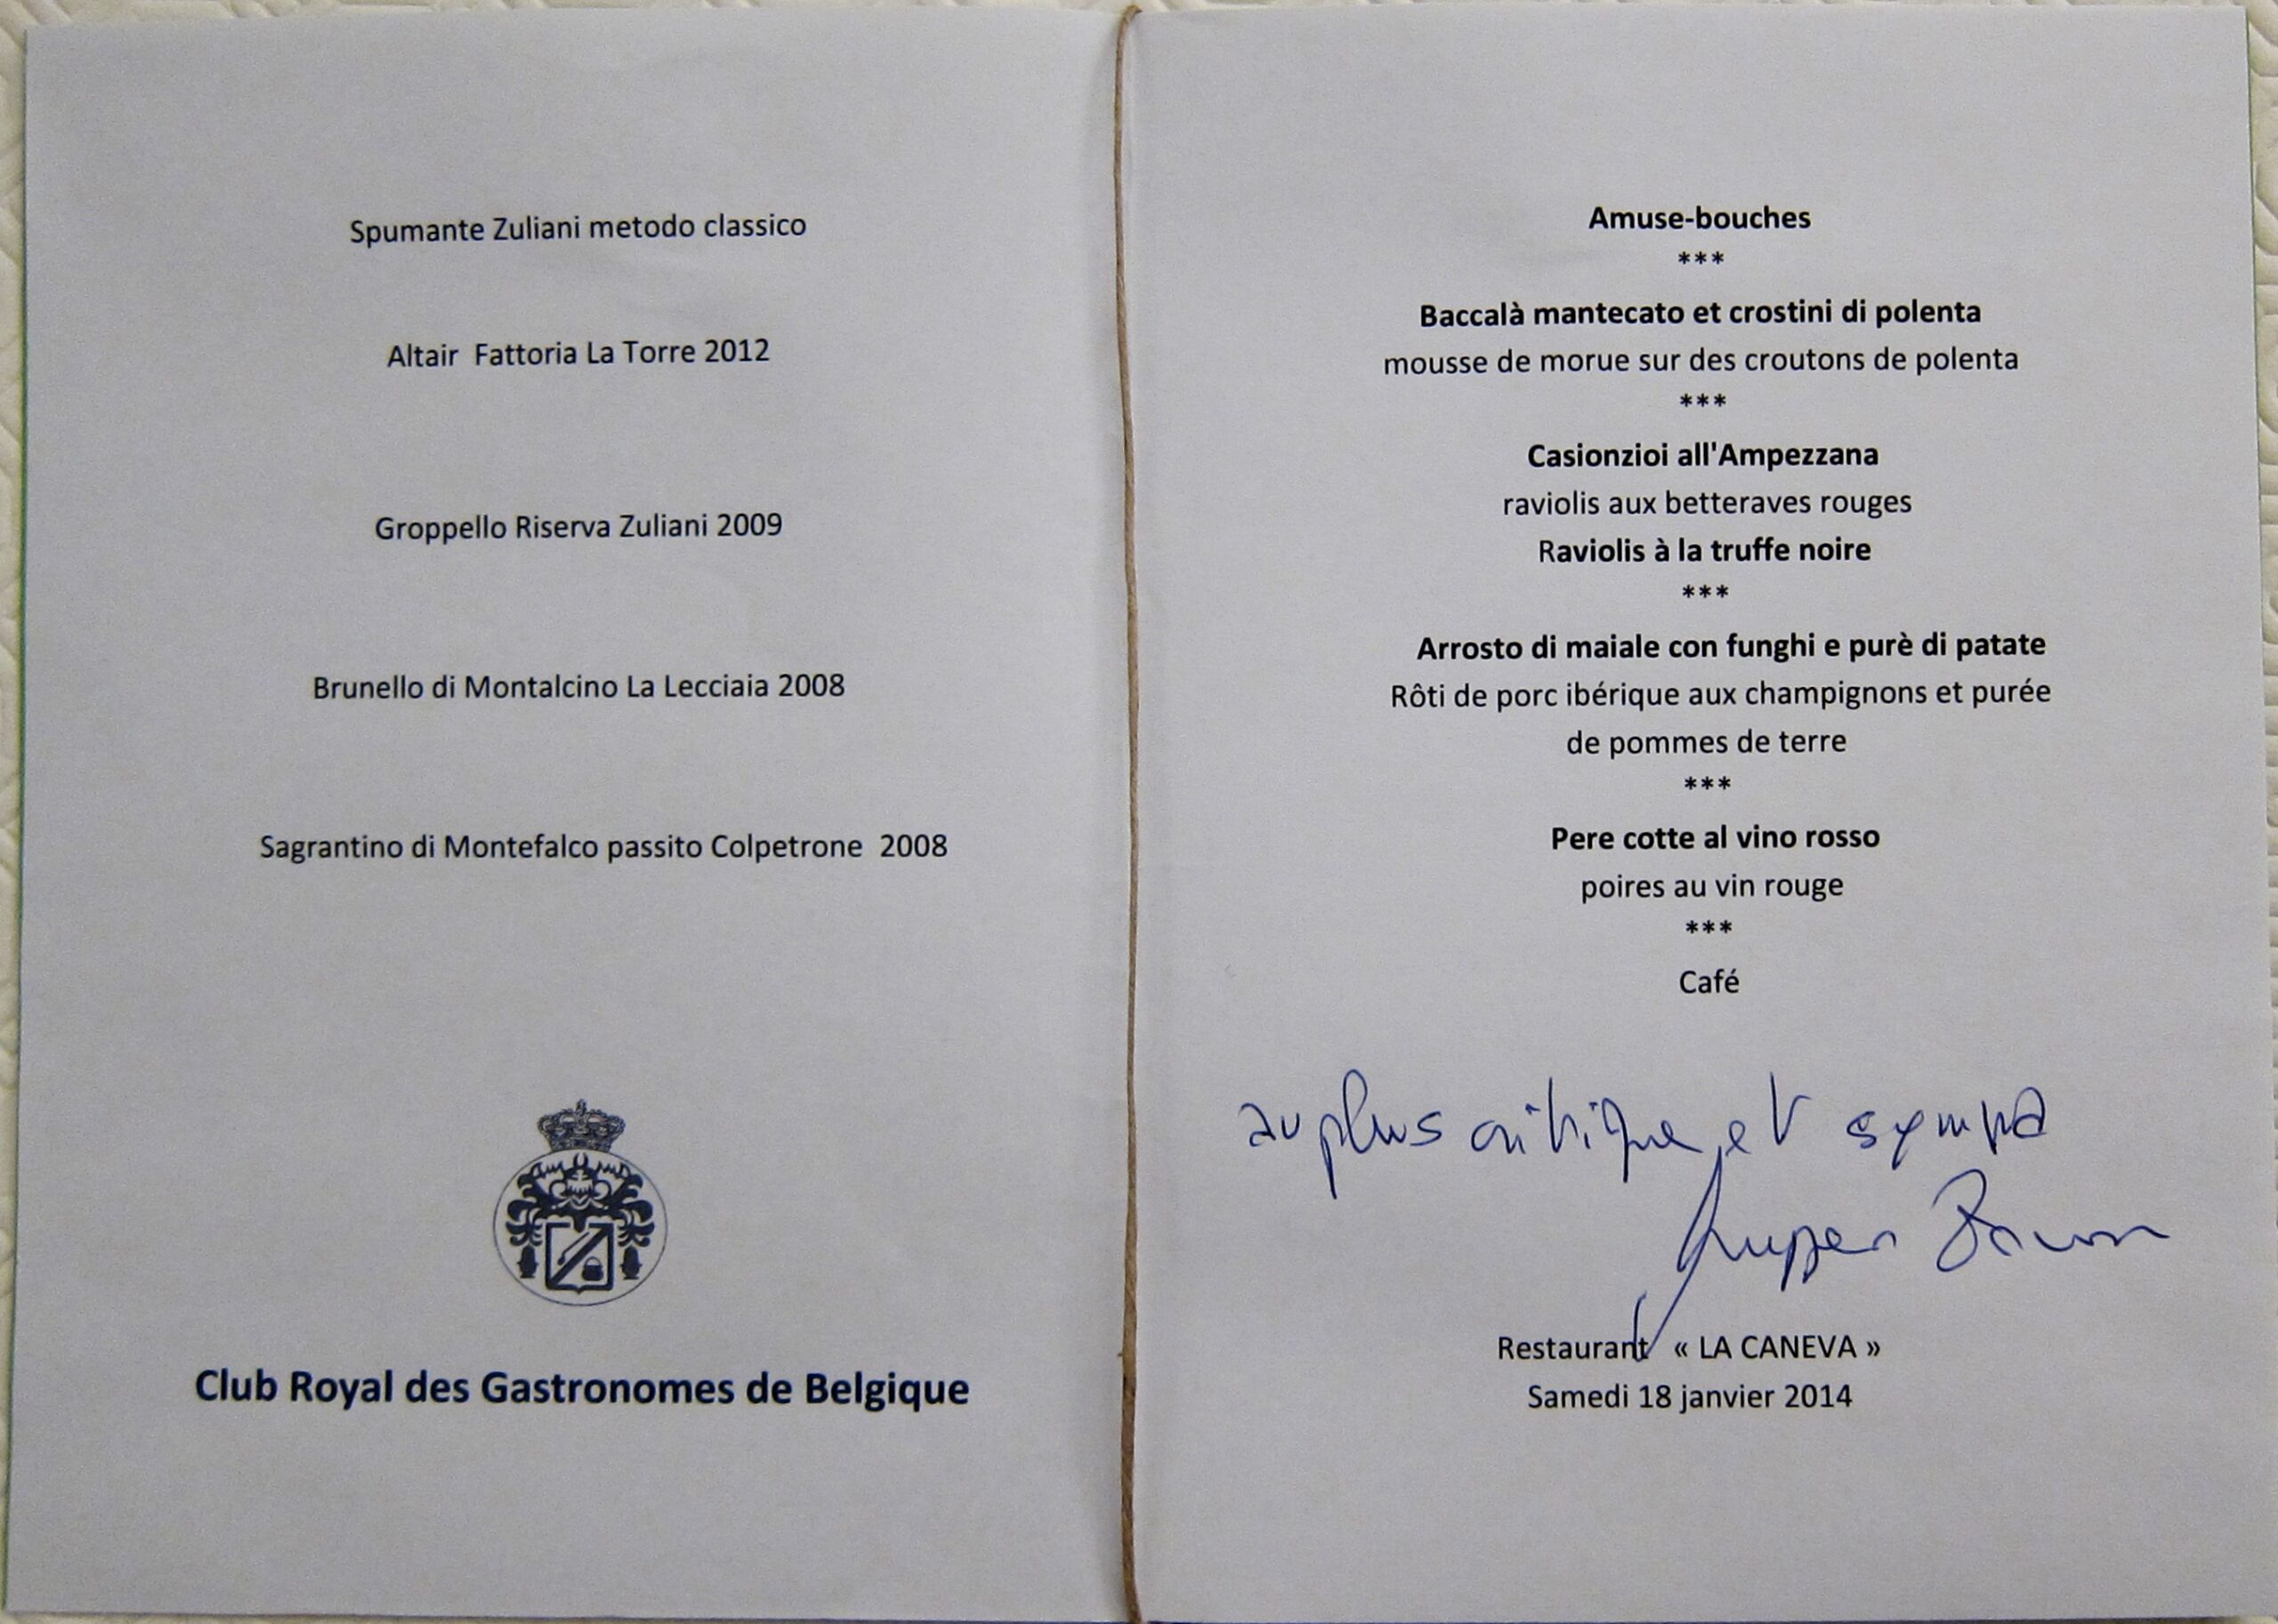 Spumante Zuliani metodo classico
Altair Fattoria La Torre 2012
Groppello Riserva Zuliani 2009
Brunello di Montalcino La Lecciaia 2008
Sagrantino di Montefalco passito Colpetrone 2008
Club Royal des Gastronomes de Belgique
Amuse-bouches
***
Baccalà mantecato et crostini di polenta
mousse de morue sur des croutons de polenta
***
Casionzioi all'Ampezzana
raviolis aux betteraves rouges
Raviolis à la truffe noire
***
Arrosto di maiale con funghi e purè di patate
Rôti de porc ibérique aux champignons et purée
de pommes de terre
***
Pere cotte al vino rosso
poires au vin rouge
***
Café
au plus critique et sympa
Restaurant « LA CANEVA »
Samedi 18 janvier 2014